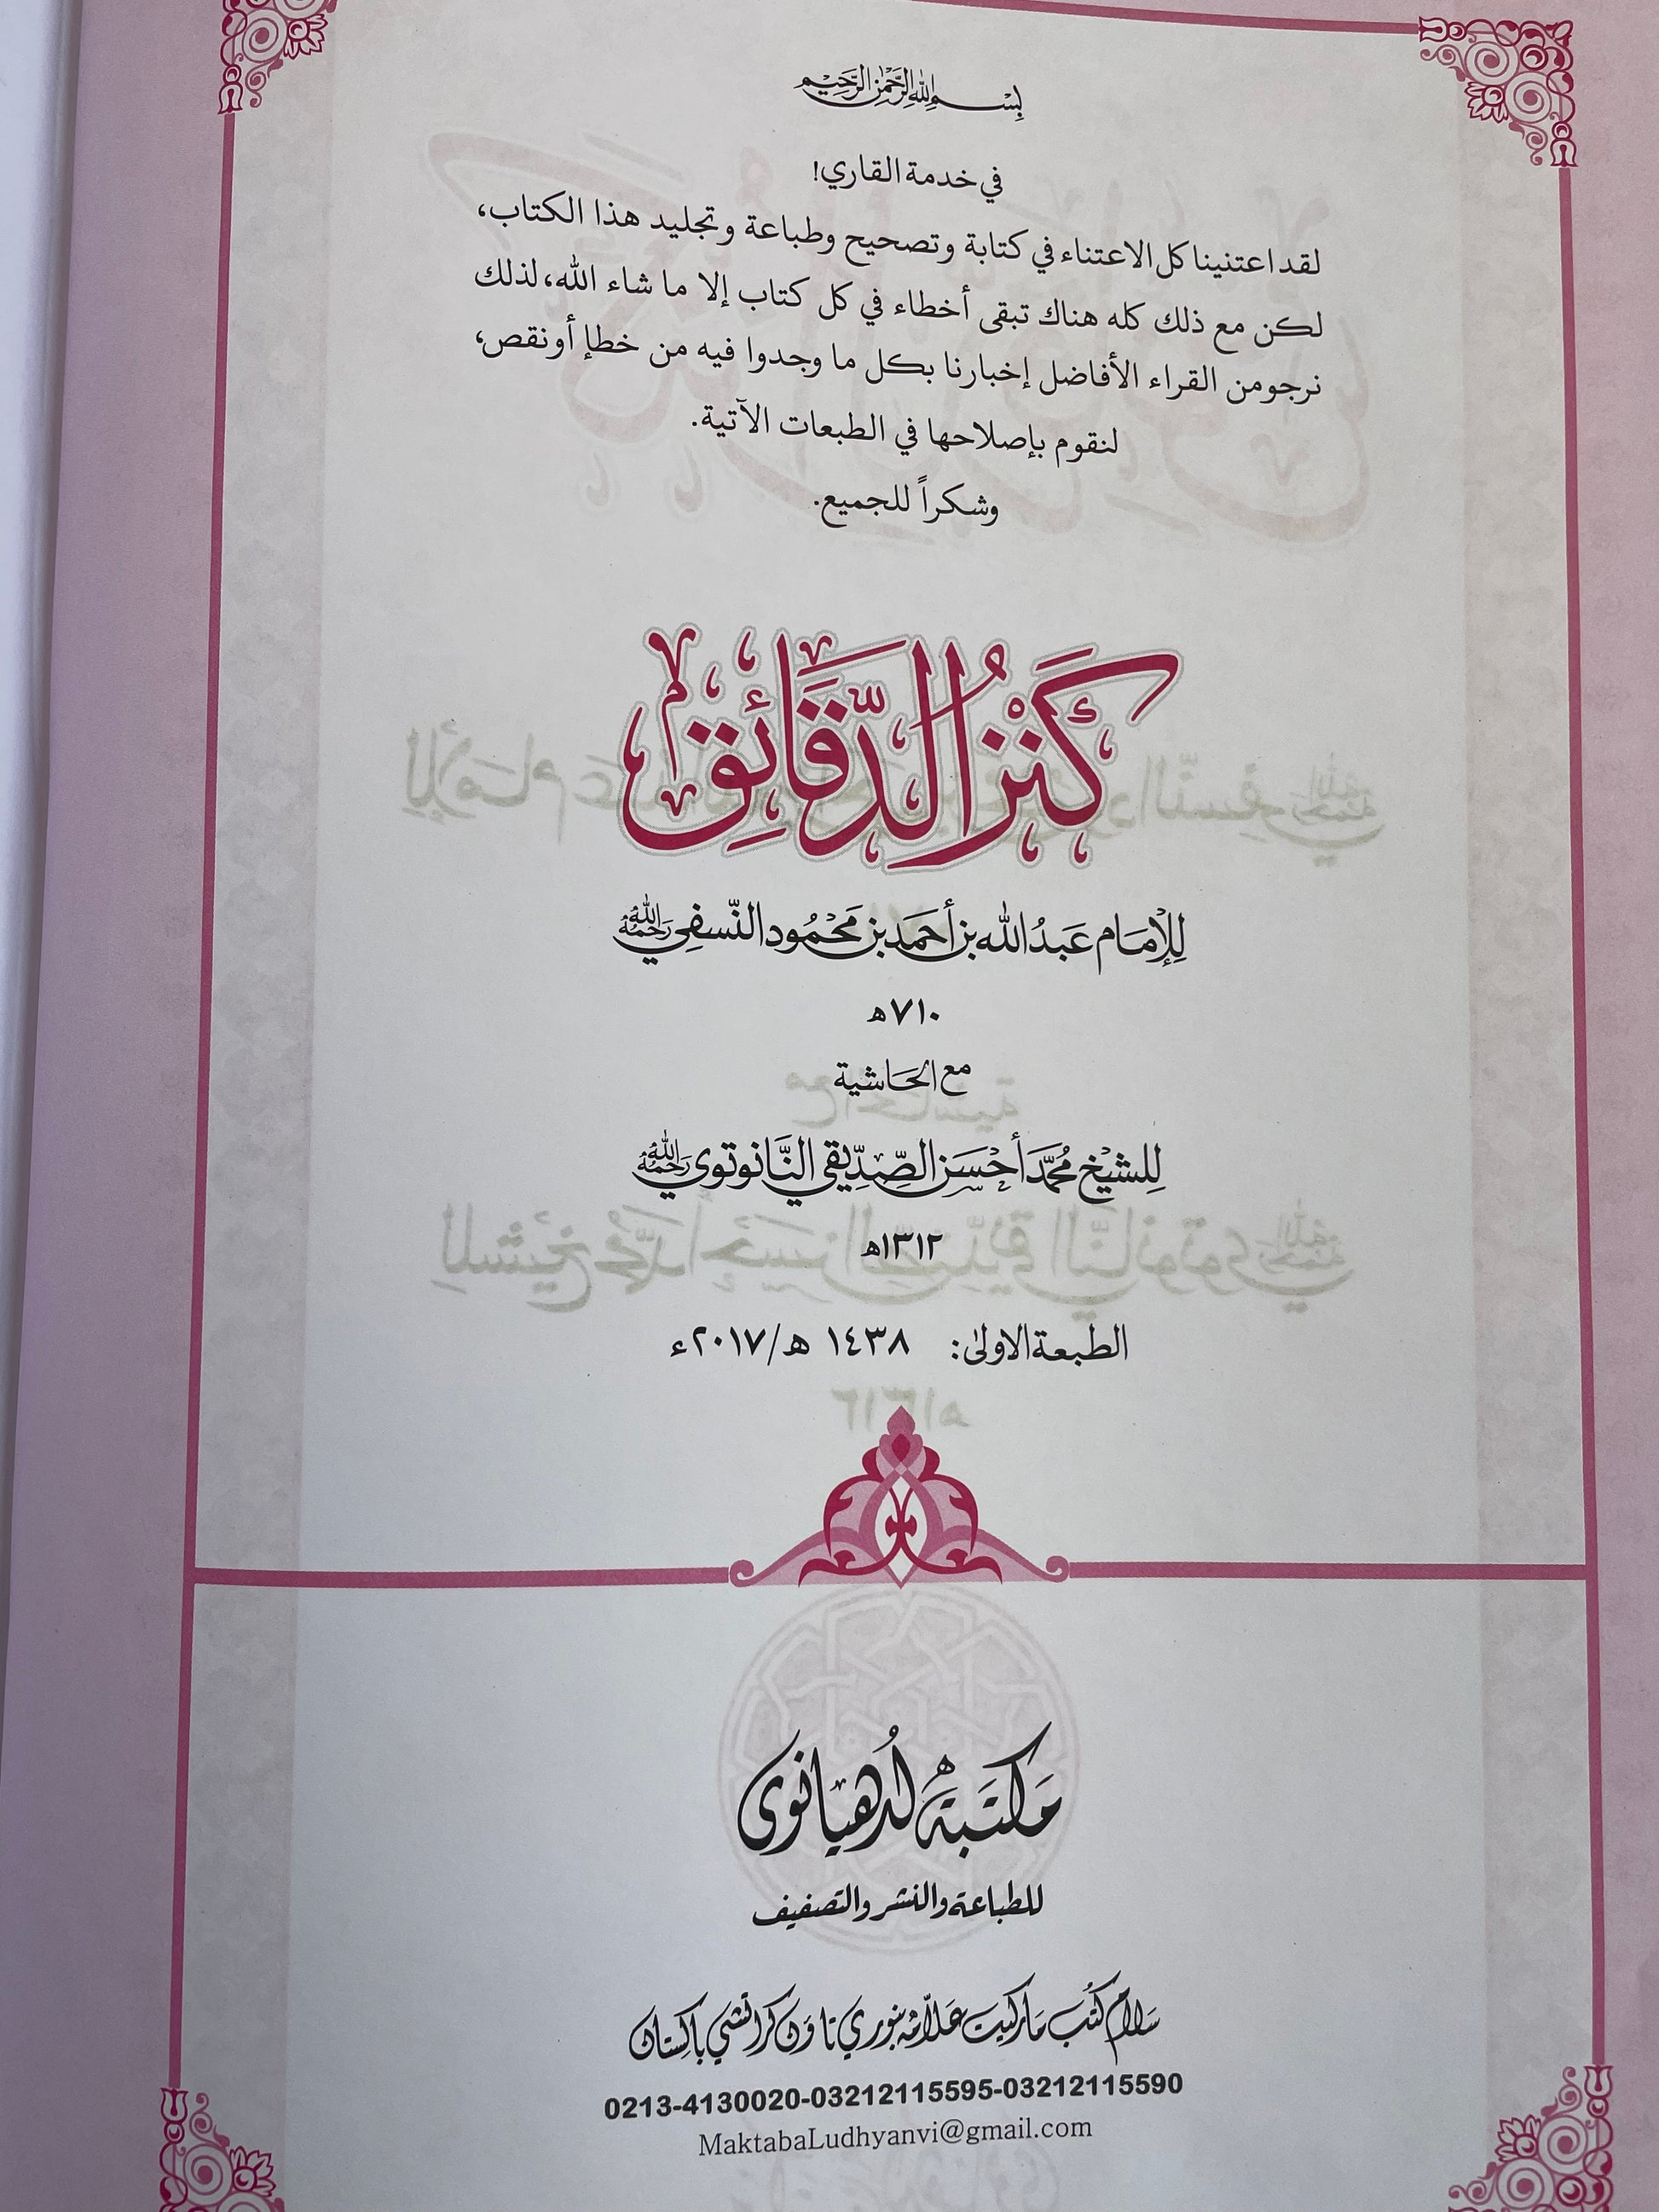 بسم الله الرحمن الرحيم
في خدمة القاري!
لقد اعتنينا كل الاعتناء في كتابة وتصحيح وطباعة وتجليد هذا الكتاب،
لكن مع ذلك كله هناك تبقى أخطاء في كل كتاب إلا ما شاء الله، لذلك
نرجو من القراء الأفاضل إخبارنا بكل ما وجدوا فيه من خطإ أو نقص،
لنقوم بإصلاحها في الطبعات الآتية.
وشكراً للجميع.
كَنْزُ الدَّقَائِق
لِلْإِمَام عَبدُ الله بن أحمَد بن مَحْمُود النَّسفِي رَحِمَهُ اللهُ
٧١٠ھ
مع الحَاشية
لِلشيْخ مُحمَّد أحْسَن الصِّدِّيقي النَّانوتوي رَحِمَهُ اللهُ
١٣١٢ھ
الطبعة الاولىٰ: ١٤٣٨ ھ/٢٠١٧ء
مَكتَبَة لُدھیانوی
للطباعة والنشر والتصنيف
سَلام كتُب مَاركيت عَلاّمَه بنوري تاؤن كراتشي باكستان
0213-4130020-03212115595-03212115590
MaktabaLudhyanvi@gmail.com